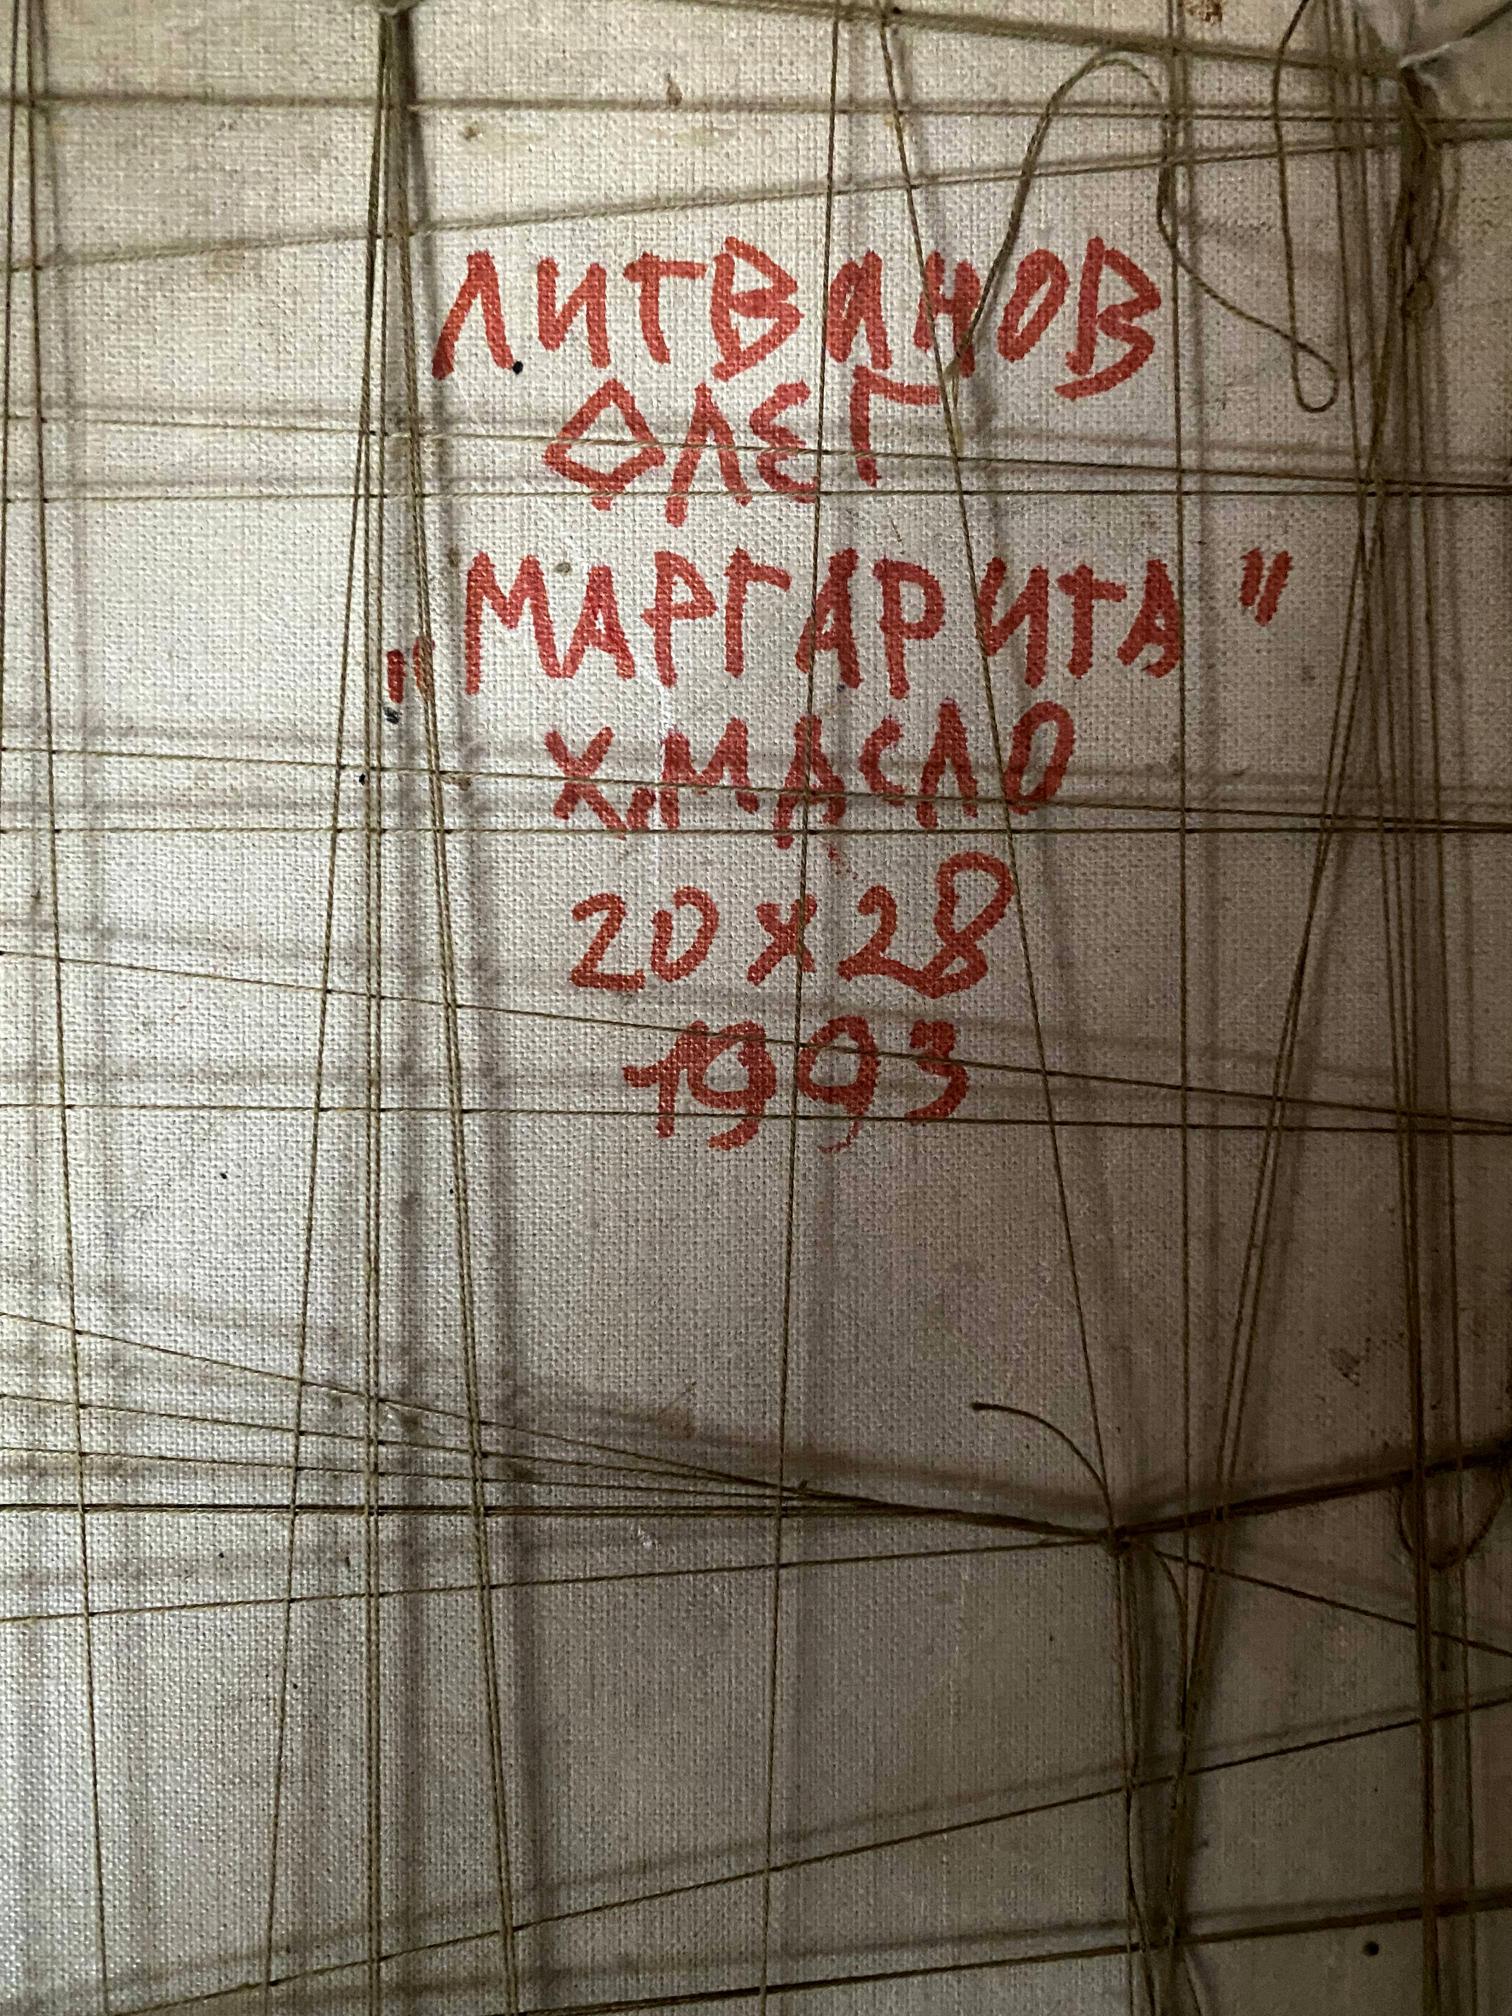 ЛИТВИНОВ
ОЛЕГ
„МАРГАРИТА"
Х,МАСЛО
20х28
1993